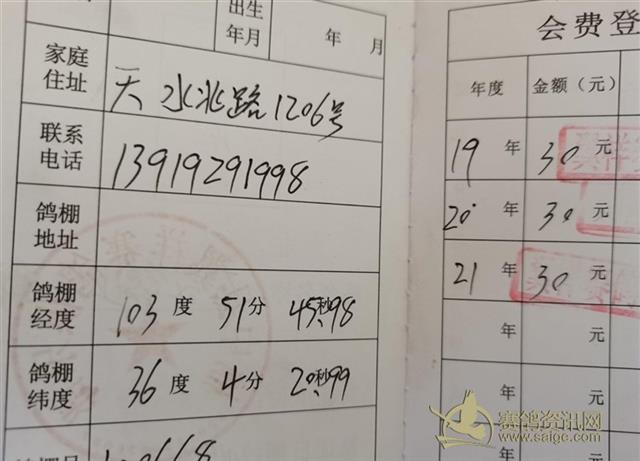 出生
年月
年 月
家庭
住址
天水北路1206号
联系
电话
13919291998
鸽棚
地址
鸽棚
经度
103度 51分 45秒98
鸽棚
纬度
36度 4分 20秒99
会费登
年度 金额（元）
19年 30元
20年 30元
21年 30元
年 元
年 元
年 元
赛鸽资讯网
www.saige.com